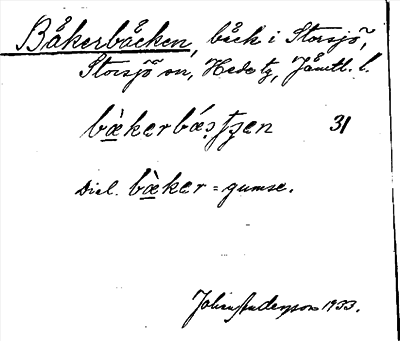 Båkerbäcken, bäck i Storsjö,
Storsjö sn, Hede tg, Jämtl. l.
bæ̀kerbæ 31
Dial. bæ̀ker = gumse.
Johan Anderson 1933.